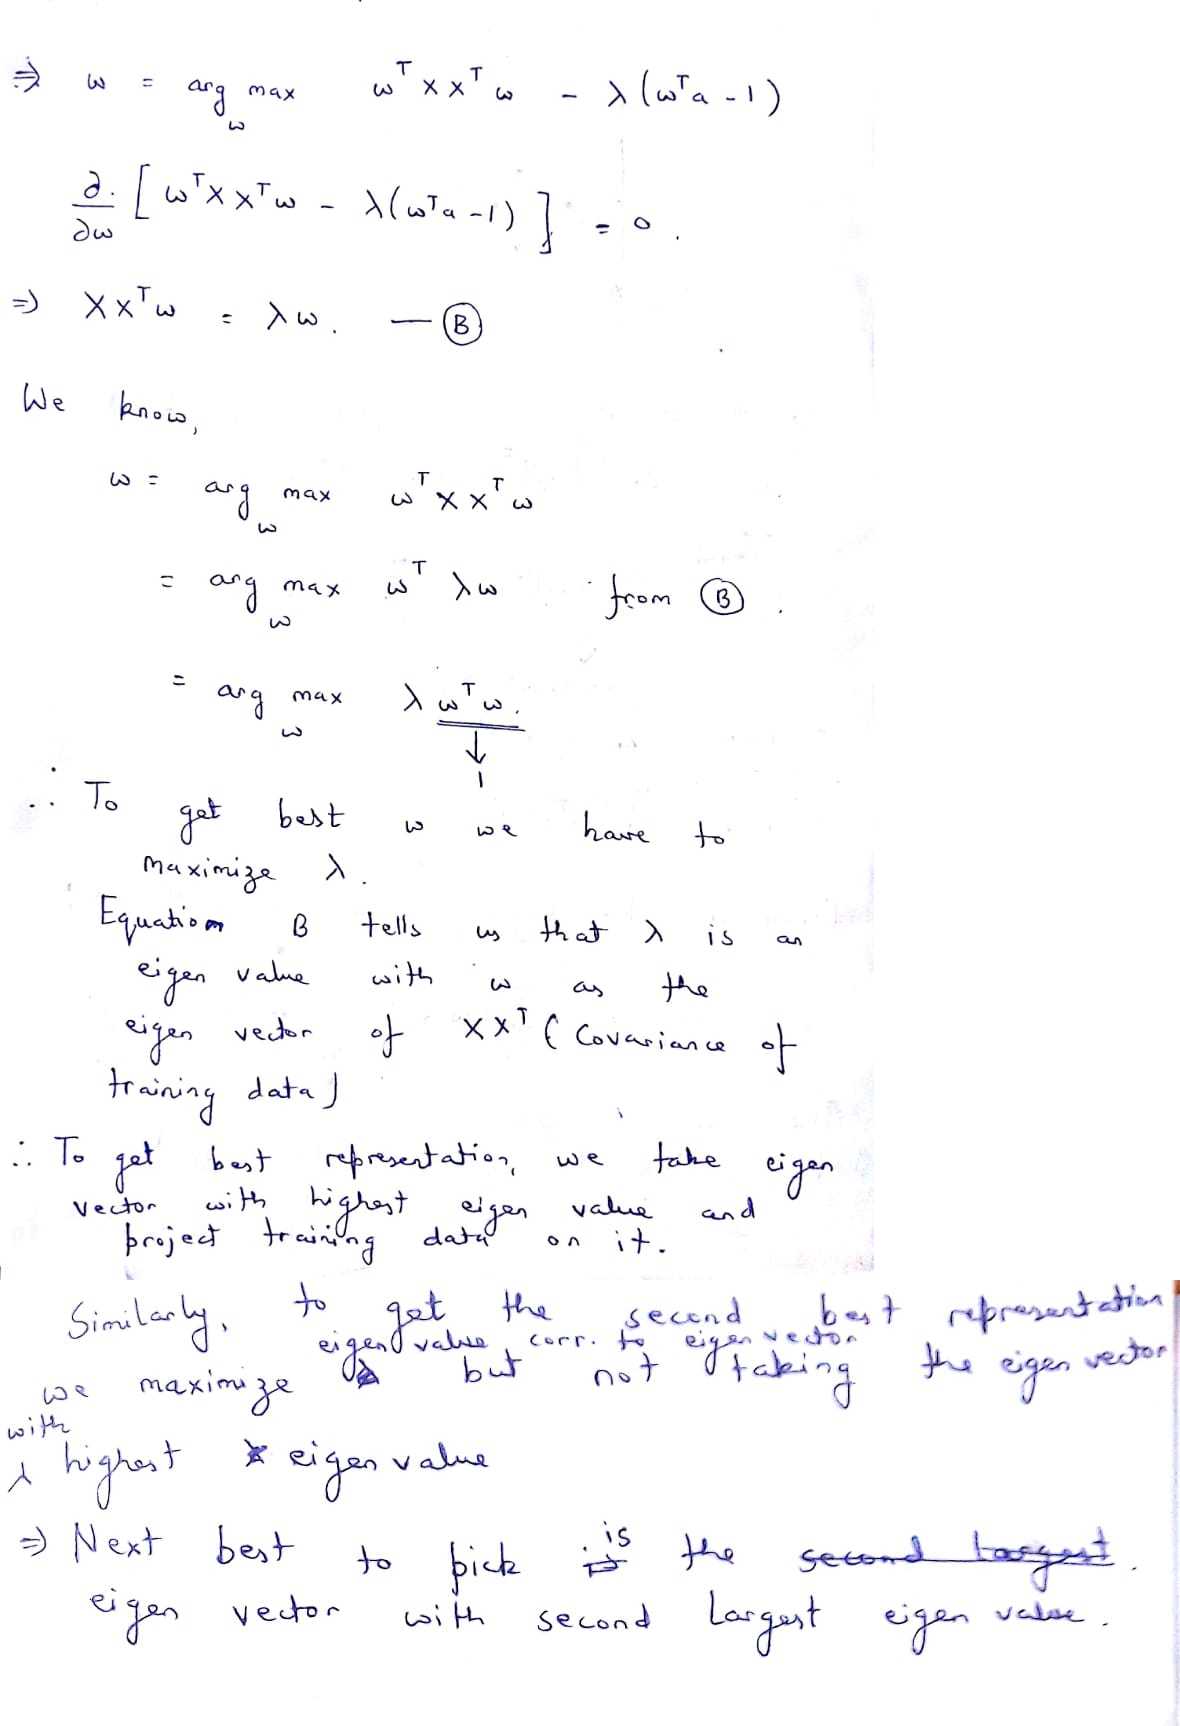 ⇒ ω = arg max ω^T X X^T ω - λ(ω^T a - 1)
ω
∂/∂ω [ω^T X X^T ω - λ(ω^T a - 1)] = 0.
⇒ X X^T ω = λω. — Ⓑ
We know,
ω = arg max ω^T X X^T ω
ω
= arg max ω^T λω from Ⓑ.
ω
= arg max λ ω^T ω.
ω
↓
1
∴ To get best ω we have to
maximize λ.
Equation B tells us that λ is an
eigen value with ω as the
eigen vector of XX^T (Covariance of
training data)
∴ To get best representation, we take eigen
vector with highest eigen value and
project training data on it.
Similarly, to get the second best representation
eigen value corr. to eigen vector
we maximize but not taking the eigen vector
with
highest eigen value
⇒ Next best to pick is the second largest.
eigen vector with second largest eigen value.